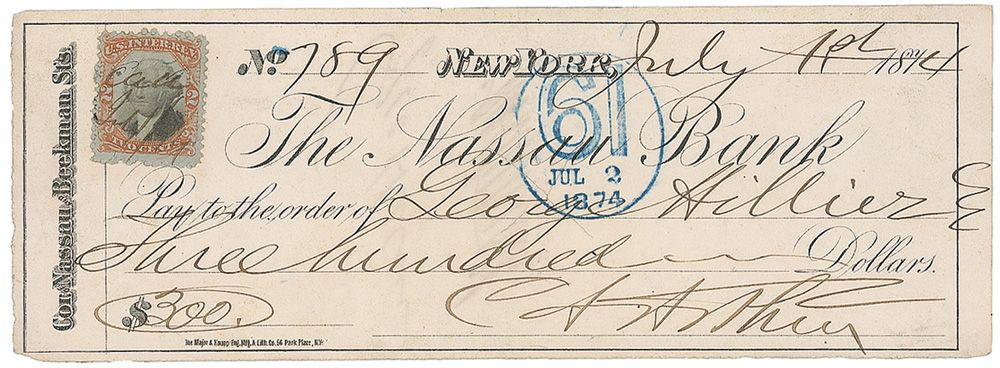 Cor. Nassau & Beekman Sts.
U.S. INTER. REV.
2 2
TWO CENTS
No. 789 New York, July 1st 1874
61
JUL 2
1874
The Nassau Bank
Pay to the order of George Hillier Esq
Three hundred Dollars.
$300.
C A Arthur
The Major & Knapp Eng. Mfg. & Lith. Co. 56 Park Place, N.Y.